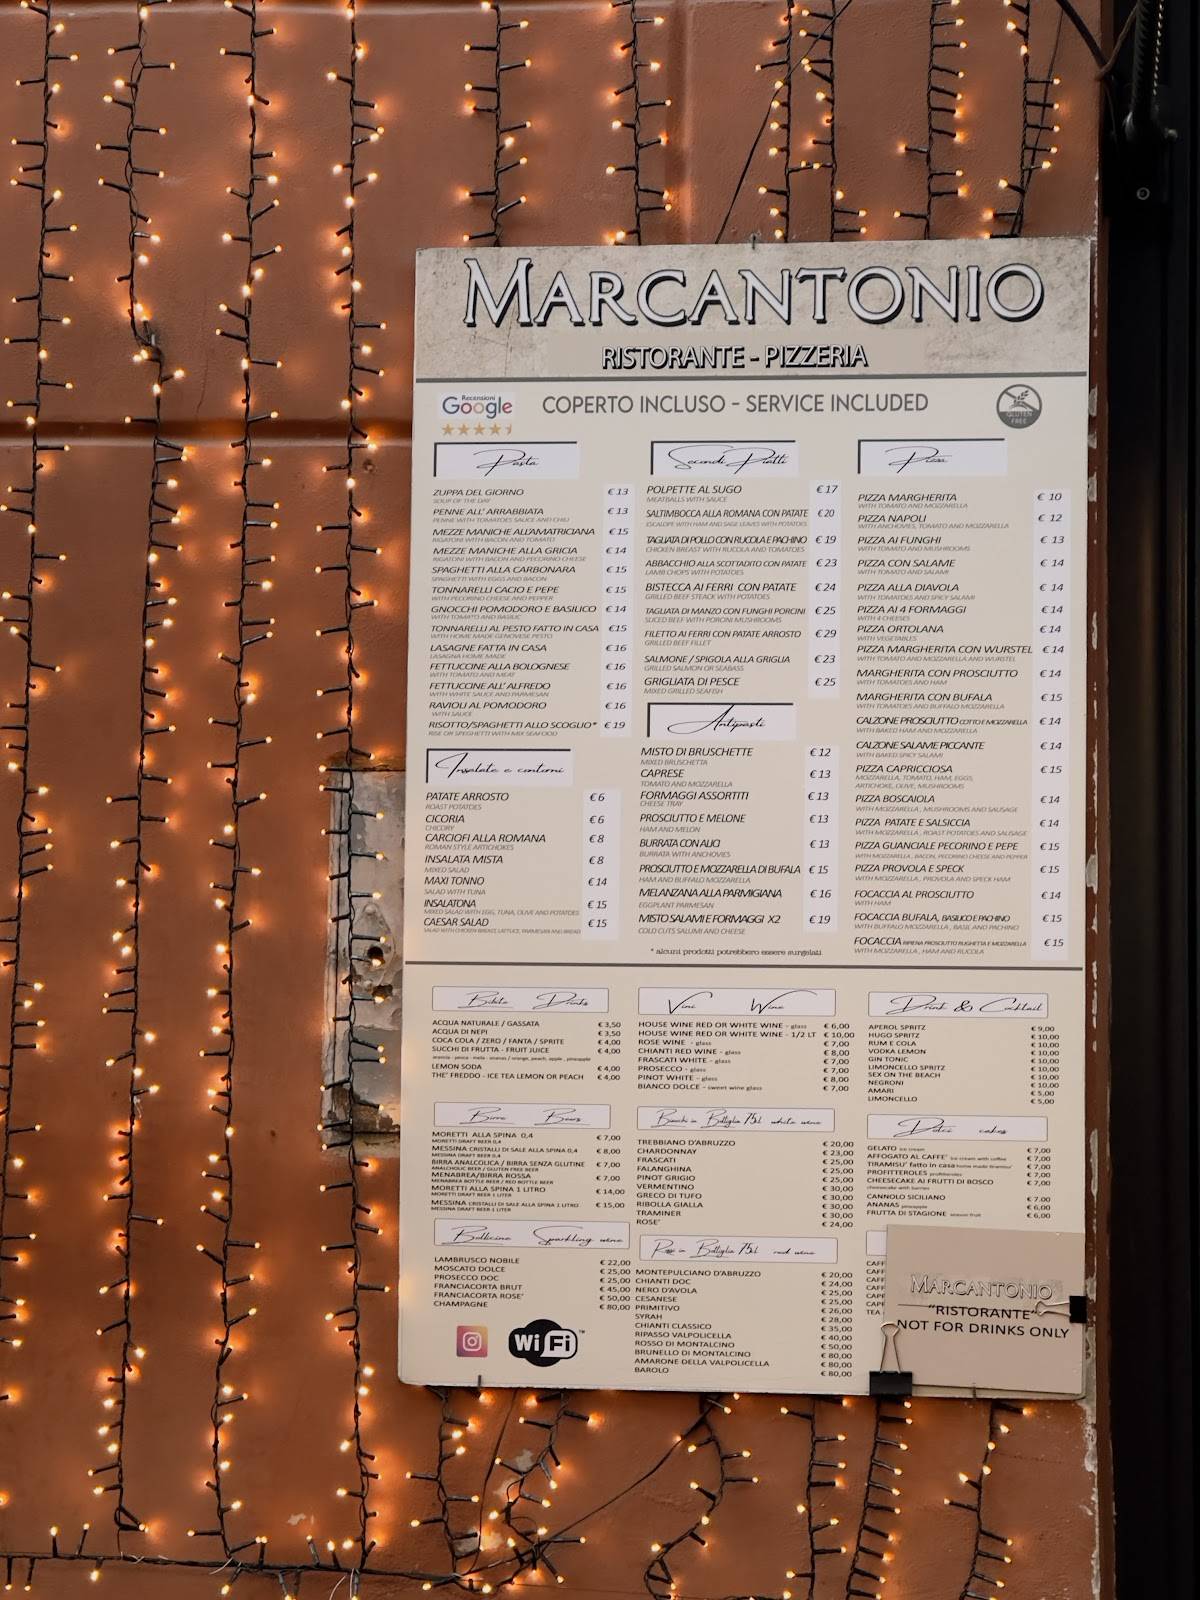 MARCANTONIO
RISTORANTE - PIZZERIA
Recensioni
Google
COPERTO INCLUSO - SERVICE INCLUDED
GLUTEN
FREE
Pasta
ZUPPA DEL GIORNO € 13
SOUP OF THE DAY
PENNE ALL' ARRABBIATA € 13
PENNE WITH TOMATOES SAUCE AND CHILI
MEZZE MANICHE ALL'AMATRICIANA € 15
RIGATONI WITH BACON AND TOMATO
MEZZE MANICHE ALLA GRICIA € 14
RIGATONI WITH BACON AND PECORINO CHEESE
SPAGHETTI ALLA CARBONARA € 15
SPAGHETTI WITH EGGS AND BACON
TONNARELLI CACIO E PEPE € 15
WITH PECORINO CHEESE AND PEPPER
GNOCCHI POMODORO E BASILICO € 14
WITH TOMATO AND BASILIC
TONNARELLI AL PESTO FATTO IN CASA €15
WITH HOME MADE GENOVESE PESTO
LASAGNE FATTA IN CASA € 16
LASAGNA HOME MADE
FETTUCCINE ALLA BOLOGNESE € 16
WITH TOMATO AND MEAT
FETTUCCINE ALL' ALFREDO € 16
WITH WHITE SAUCE AND PARMESAN
RAVIOLI AL POMODORO € 16
WITH SAUCE
RISOTTO/SPAGHETTI ALLO SCOGLIO* € 19
RISE OR SPEGHETTI WITH MIX SEAFOOD
Insalate e contorni
PATATE ARROSTO € 6
ROAST POTATOES
CICORIA € 6
CHICORY
CARCIOFI ALLA ROMANA € 8
ROMAN STYLE ARTICHOKES
INSALATA MISTA € 8
MIXED SALAD
MAXI TONNO € 14
SALAD WITH TUNA
INSALATONA € 15
MIXED SALAD WITH EGG, TUNA, OLIVE AND POTATOES
CAESAR SALAD € 15
SALAD WITH CHICKEN BREAST, LATTUCE, PARMESAN AND BREAD
Secondi Piatti
POLPETTE AL SUGO € 17
MEATBALLS WITH SAUCE
SALTIMBOCCA ALLA ROMANA CON PATATE € 20
ESCALOPE WITH HAM AND SAGE LEAVES WITH POTATOES
TAGLIATA DI POLLO CON RUCOLA E PACHINO € 19
CHICKEN BREAST WITH RUCOLA AND TOMATOES
ABBACCHIO ALLA SCOTTADITO CON PATATE € 23
LAMB CHOPS WITH POTATOES
BISTECCA AI FERRI CON PATATE € 24
GRILLED BEEF STEACK WITH POTATOES
TAGLIATA DI MANZO CON FUNGHI PORCINI € 25
SLICED BEEF WITH PORCINI MUSHROOMS
FILETTO AI FERRI CON PATATE ARROSTO € 29
GRILLED BEEF FILLET
SALMONE / SPIGOLA ALLA GRIGLIA € 23
GRILLED SALMON OR SEABASS
GRIGLIATA DI PESCE € 25
MIXED GRILLED SEAFISH
Antipasti
MISTO DI BRUSCHETTE € 12
MIXED BRUSCHETTA
CAPRESE € 13
TOMATO AND MOZZARELLA
FORMAGGI ASSORTITI € 13
CHEESE TRAY
PROSCIUTTO E MELONE € 13
HAM AND MELON
BURRATA CON ALICI € 13
BURRATA WITH ANCHOVIES
PROSCIUTTO E MOZZARELLA DI BUFALA € 15
HAM AND BUFFALO MOZZARELLA
MELANZANA ALLA PARMIGIANA € 16
EGGPLANT PARMESAN
MISTO SALAMI E FORMAGGI X2 € 19
COLD CUTS SALUMI AND CHEESE
* alcuni prodotti potrebbero essere surgelati
Pizza
PIZZA MARGHERITA € 10
WITH TOMATO AND MOZZARELLA
PIZZA NAPOLI € 12
WITH ANCHOVIES, TOMATO AND MOZZARELLA
PIZZA AI FUNGHI € 13
WITH TOMATO AND MUSHROOMS
PIZZA CON SALAME € 14
WITH TOMATO AND SALAMI
PIZZA ALLA DIAVOLA € 14
WITH TOMATOES AND SPICY SALAMI
PIZZA AI 4 FORMAGGI € 14
WITH 4 CHEESES
PIZZA ORTOLANA € 14
WITH VEGETABLES
PIZZA MARGHERITA CON WURSTEL € 14
WITH TOMATO AND MOZZARELLA AND WURSTEL
MARGHERITA CON PROSCIUTTO € 14
WITH TOMATOES AND HAM
MARGHERITA CON BUFALA € 15
WITH TOMATOES AND BUFFALO MOZZARELLA
CALZONE PROSCIUTTO COTTO E MOZZARELLA € 14
WITH BAKED HAM AND MOZZARELLA
CALZONE SALAME PICCANTE € 14
WITH BAKED SPICY SALAMI
PIZZA CAPRICCIOSA € 15
MOZZARELLA, TOMATO, HAM, EGGS,
ARTICHOKE, OLIVE, MUSHROOMS
PIZZA BOSCAIOLA € 14
WITH MOZZARELLA, MUSHROOMS AND SAUSAGE
PIZZA PATATE E SALSICCIA € 14
WITH MOZZARELLA, ROAST POTATOES AND SAUSAGE
PIZZA GUANCIALE PECORINO E PEPE € 15
WITH MOZZARELLA, BACON, PECORINO CHEESE AND PEPPER
PIZZA PROVOLA E SPECK € 15
WITH MOZZARELLA, PROVOLA AND SPECK HAM
FOCACCIA AL PROSCIUTTO € 14
WITH HAM
FOCACCIA BUFALA, BASILICO E PACHINO € 15
WITH BUFFALO MOZZARELLA, BASIL AND PACHINO
FOCACCIA RIPIENA PROSCIUTTO RUGHETTA E MOZZARELLA € 15
WITH MOZZARELLA, HAM AND RUCOLA
Bibite Drinks
ACQUA NATURALE / GASSATA € 3,50
ACQUA DI NEPI € 3,50
COCA COLA / ZERO / FANTA / SPRITE € 4,00
SUCCHI DI FRUTTA - FRUIT JUICE € 4,00
arancia - pesca - mela - ananas / orange, peach, apple, pineapple
LEMON SODA € 4,00
THE' FREDDO - ICE TEA LEMON OR PEACH € 4,00
Birre Beers
MORETTI ALLA SPINA 0,4 € 7,00
MORETTI DRAFT BEER 0,4
MESSINA CRISTALLI DI SALE ALLA SPINA 0,4 € 8,00
MESSINA DRAFT BEER 0,4
BIRRA ANALCOLICA / BIRRA SENZA GLUTINE € 7,00
ANALCHOLIC BEER / GLUTEN FREE BEER
MENABREA/BIRRA ROSSA € 7,00
MENABREA BOTTLE BEER / RED BOTTLE BEER
MORETTI ALLA SPINA 1 LITRO € 14,00
MORETTI DRAFT BEER 1 LITER
MESSINA CRISTALLI DI SALE ALLA SPINA 1 LITRO € 15,00
MESSINA DRAFT BEER 1 LITER
Bollicine Sparkling wine
LAMBRUSCO NOBILE € 22,00
MOSCATO DOLCE € 25,00
PROSECCO DOC € 25,00
FRANCIACORTA BRUT € 45,00
FRANCIACORTA ROSE' € 50,00
CHAMPAGNE € 80,00
WiFi
Vini Wine
HOUSE WINE RED OR WHITE WINE - glass € 6,00
HOUSE WINE RED OR WHITE WINE - 1/2 LT € 10,00
ROSE WINE - glass € 7,00
CHIANTI RED WINE - glass € 8,00
FRASCATI WHITE - glass € 7,00
PROSECCO - glass € 7,00
PINOT WHITE - glass € 8,00
BIANCO DOLCE - sweet wine glass € 7,00
Bianchi in Bottiglia 75cl white wine
TREBBIANO D'ABRUZZO € 20,00
CHARDONNAY € 23,00
FRASCATI € 25,00
FALANGHINA € 25,00
PINOT GRIGIO € 25,00
VERMENTINO € 30,00
GRECO DI TUFO € 30,00
RIBOLLA GIALLA € 30,00
TRAMINER € 30,00
ROSE' € 24,00
Rossi in Bottiglia 75cl red wine
MONTEPULCIANO D'ABRUZZO € 20,00
CHIANTI DOC € 24,00
NERO D'AVOLA € 25,00
CESANESE € 25,00
PRIMITIVO € 26,00
SYRAH € 28,00
CHIANTI CLASSICO € 35,00
RIPASSO VALPOLICELLA € 40,00
ROSSO DI MONTALCINO € 50,00
BRUNELLO DI MONTALCINO € 80,00
AMARONE DELLA VALPOLICELLA € 80,00
BAROLO € 80,00
Drink & Cocktail
APEROL SPRITZ € 9,00
HUGO SPRITZ € 10,00
RUM E COLA € 10,00
VODKA LEMON € 10,00
GIN TONIC € 10,00
LIMONCELLO SPRITZ € 10,00
SEX ON THE BEACH € 10,00
NEGRONI € 10,00
AMARI € 5,00
LIMONCELLO € 5,00
Dolci cakes
GELATO ice cream € 7,00
AFFOGATO AL CAFFE' ice cream with coffee € 7,00
TIRAMISU' fatto in casa home made tiramisu' € 7,00
PROFITTEROLES profitteroles € 7,00
CHEESECAKE AI FRUTTI DI BOSCO € 7,00
cheesecake with berries
CANNOLO SICILIANO € 7.00
ANANAS pineapple € 6,00
FRUTTA DI STAGIONE season fruit € 6,00
CAFF
CAFF
CAFF
CAFF
CAFF
CAPP
TEA
MARCANTONIO
"RISTORANTE"
NOT FOR DRINKS ONLY